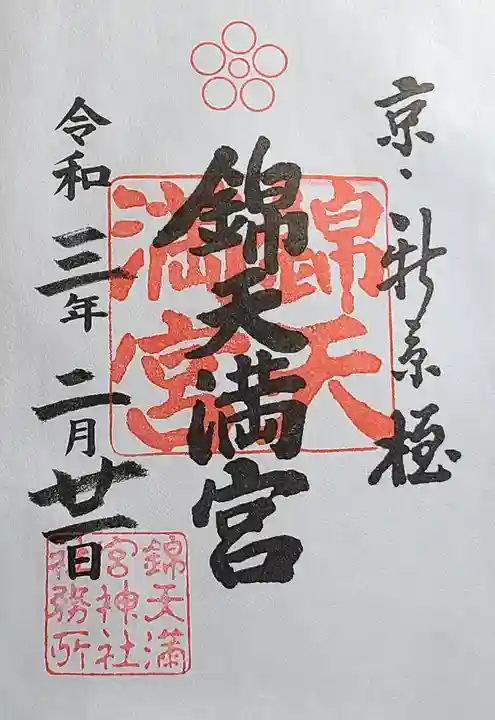 京・新京極
錦天満宮
令和三年二月廿一日
錦天
満宮
錦天満
宮神社
社務所